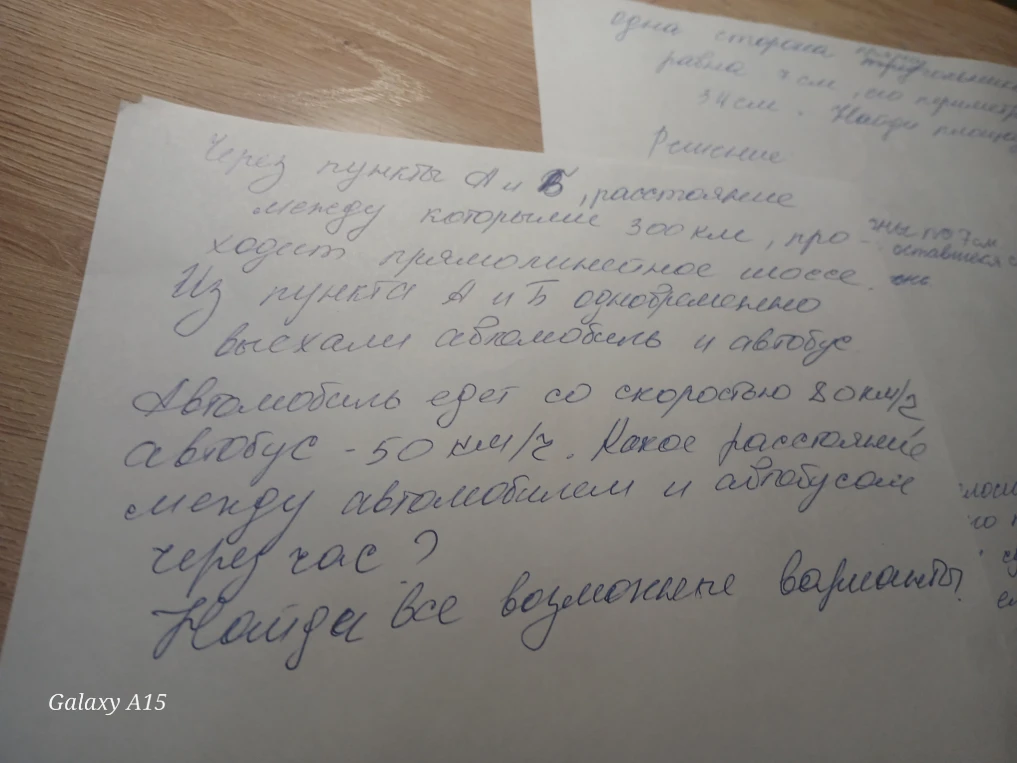 одна сторона прямо
треугольника
равна 7 см, его периметр
34 см. Найди площадь
Решение
Через пункты А и Б, расстояние
между которыми 300 км, про-
ходит прямолинейное шоссе.
Из пункта А и Б одновременно
выехали автомобиль и автобус
Автомобиль едет со скоростью 80 км/ч
автобус - 50 км/ч. Какое расстояние
между автомобилем и автобусом
через час?
Найди все возможные варианты.
ны по 7 см
оставшиеся с
Galaxy A15